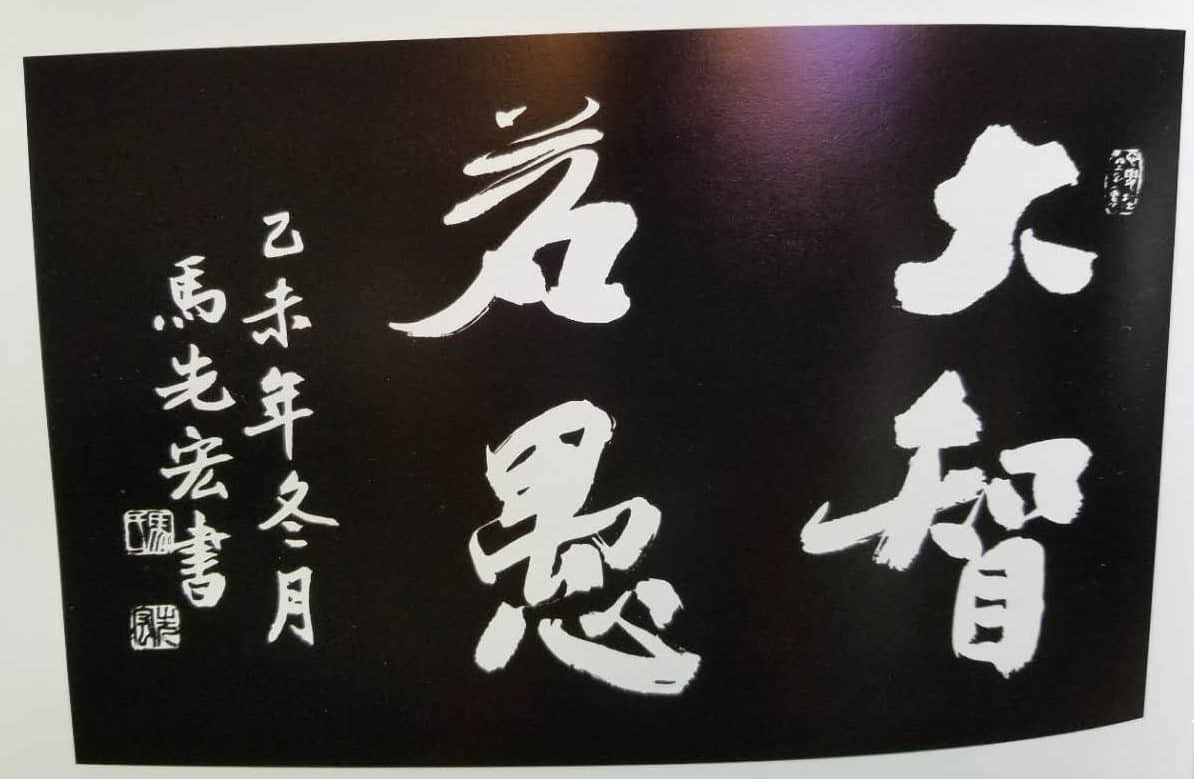 大智
若愚
乙未年冬月
馬先宏書